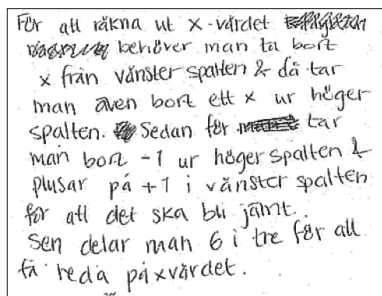 För att räkna ut x-värdet
behöver man ta bort
x från vänster spalten & då tar
man även bort ett x ur höger
spalten. Sedan för tar
man bort -1 ur höger spalten &
plusar på +1 i vänster spalten
för att det ska bli jämt.
Sen delar man 6 i tre för att
få reda på xvärdet.